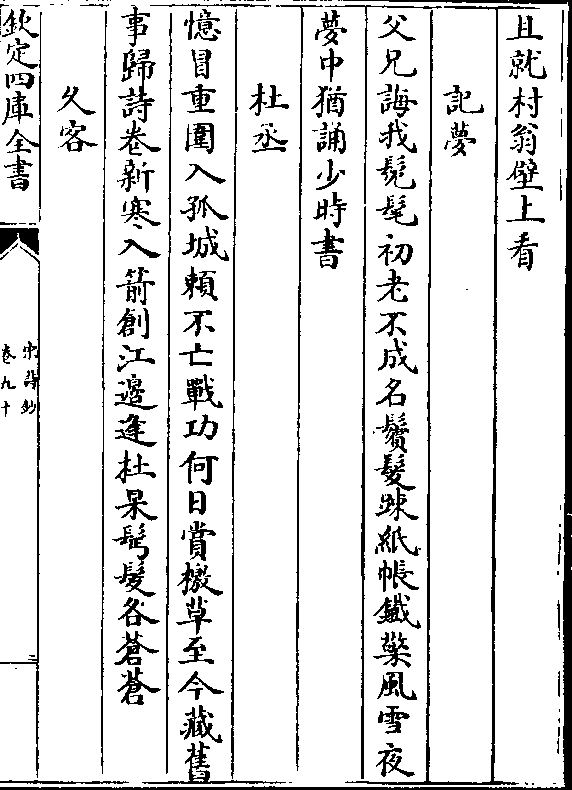 且就村翁壁上看
記夢
父兄誨我髧髦初老不成名鬢髮踈紙帳鐵檠風雪夜
夢中猶誦少時書
杜丞
憶冒重圍入孤城頼不亡戰功何日賞檄草至今藏舊
事歸詩卷新寒入箭創江邊逢杜杲髩髮各蒼蒼
久客
欽定四庫全書
宋詩鈔
卷九十
二